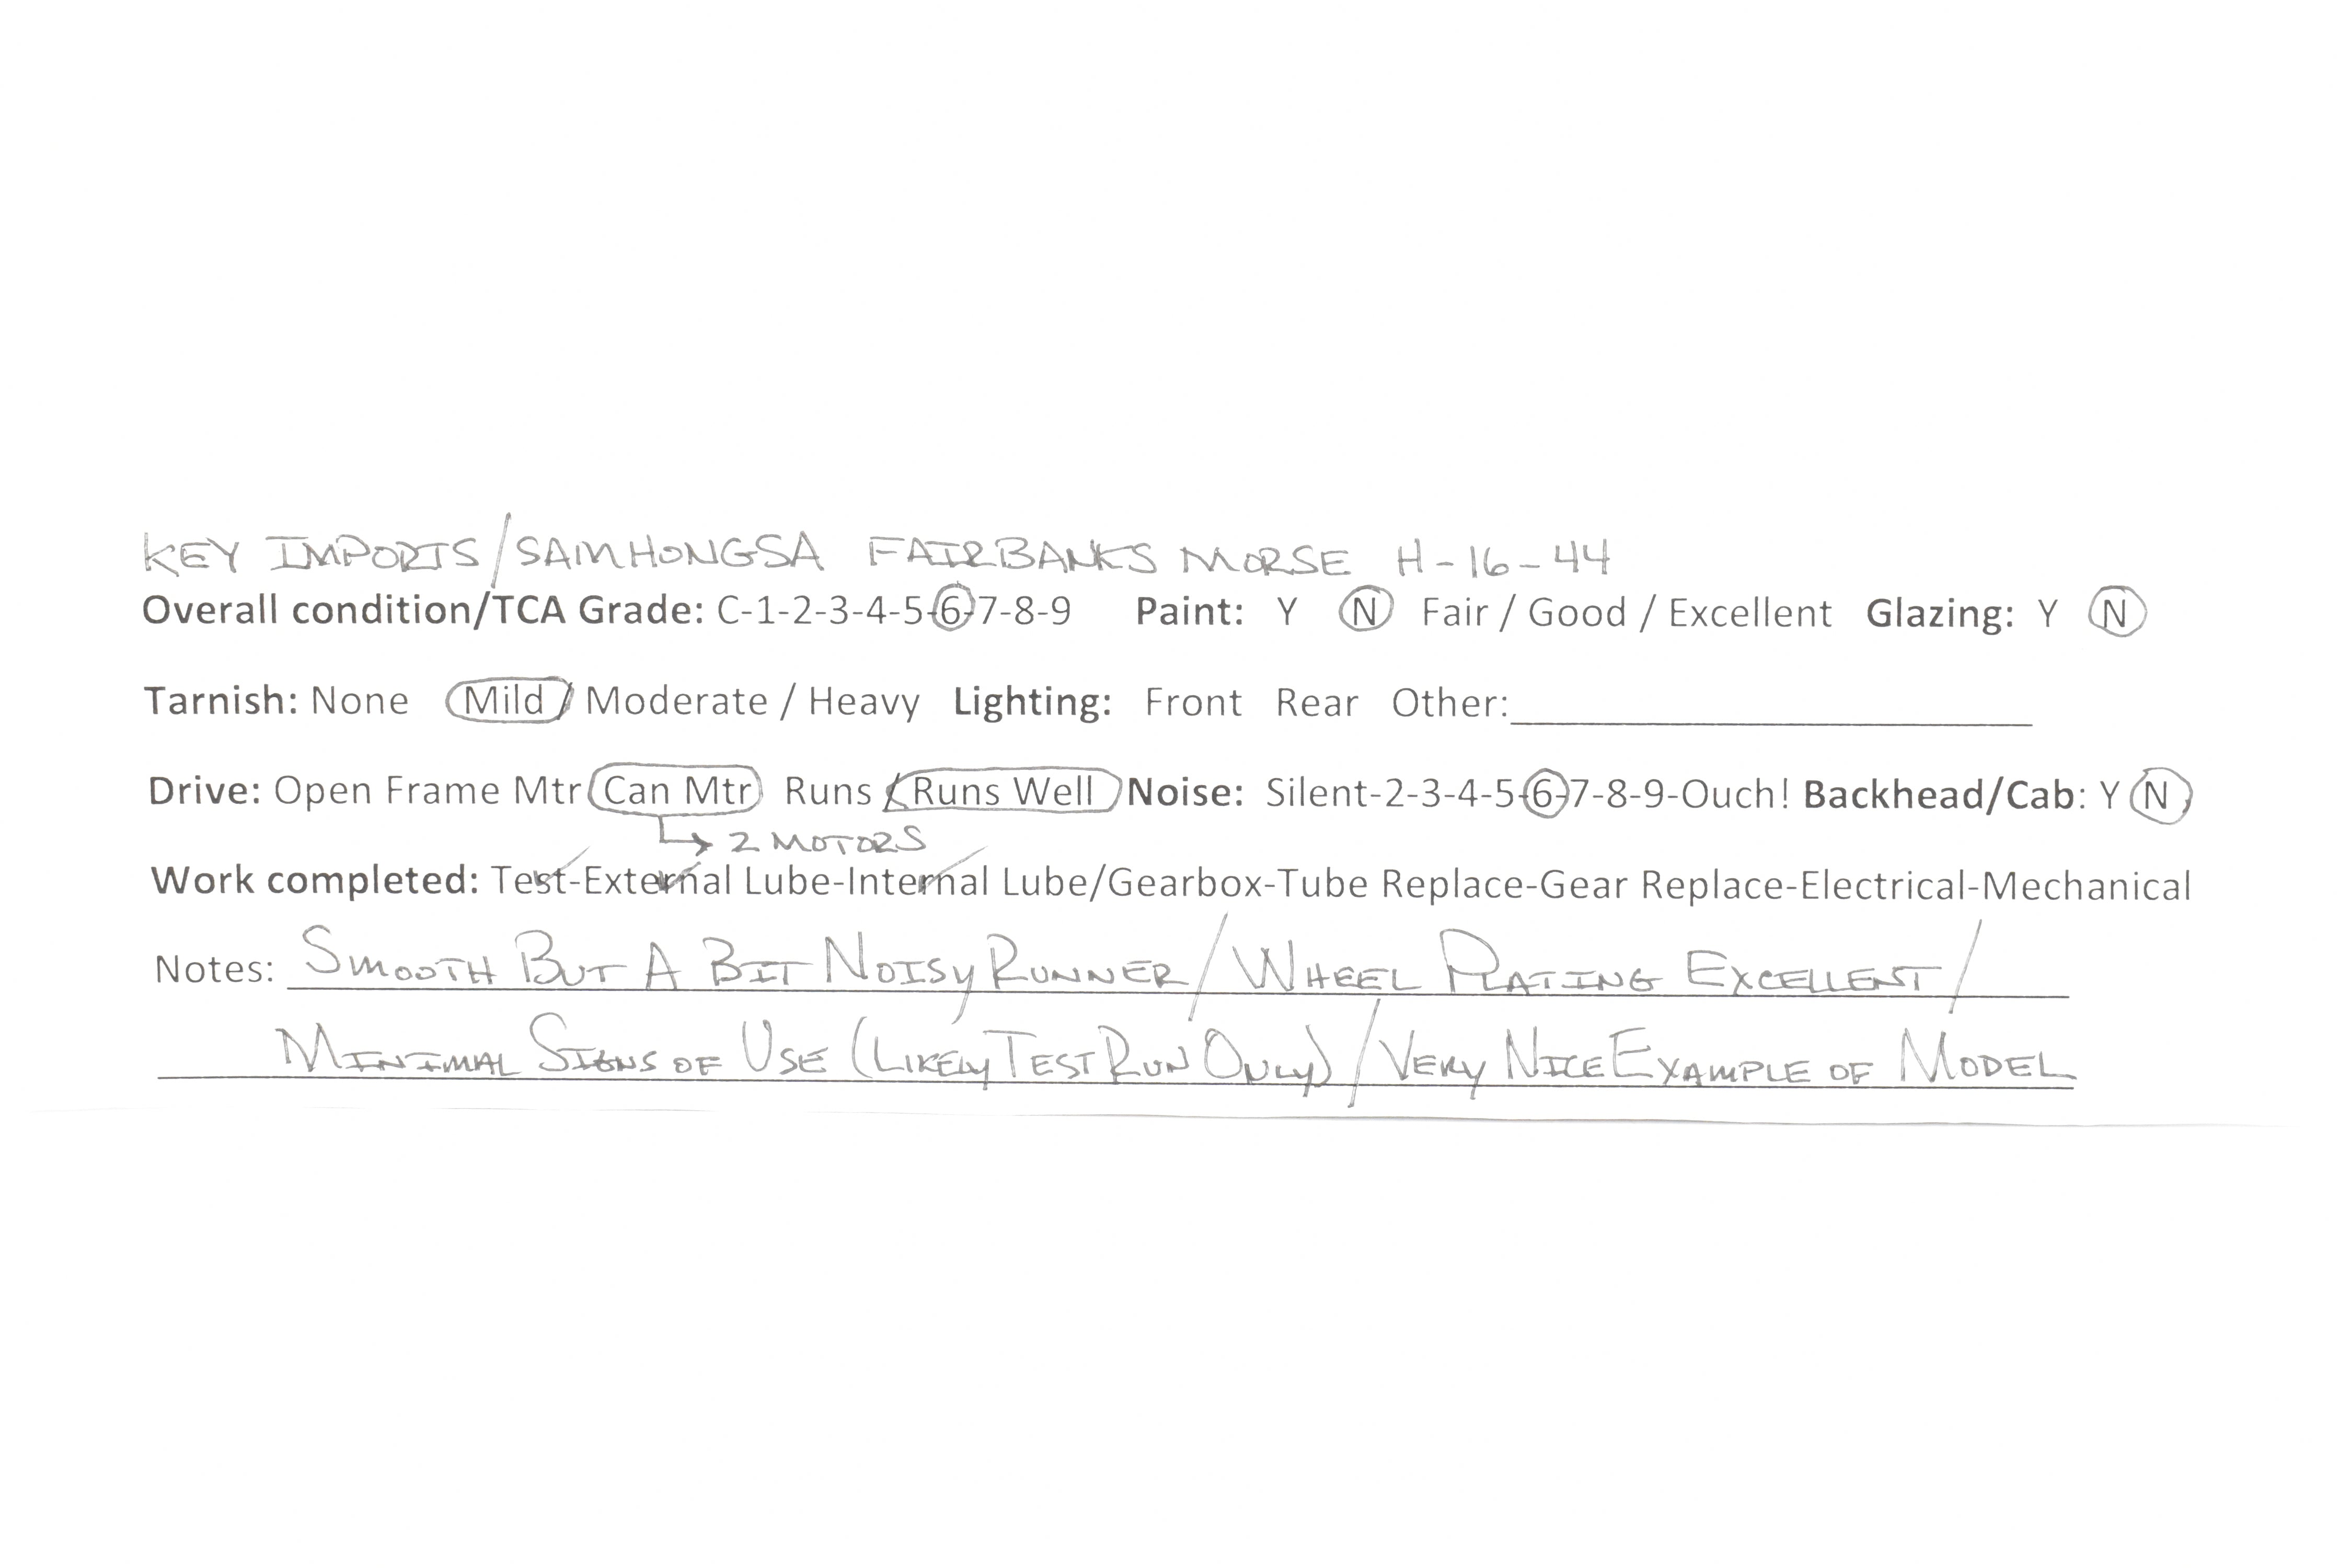 KEY IMPORTS/SAMHONGSA FAIRBANKS MORSE H-16-44
Overall condition/TCA Grade: C-1-2-3-4-5-6-7-8-9 Paint: Y N Fair / Good / Excellent Glazing: Y N
Tarnish: None Mild / Moderate / Heavy Lighting: Front Rear Other:
Drive: Open Frame Mtr Can Mtr Runs / Runs Well Noise: Silent-2-3-4-5-6-7-8-9-Ouch! Backhead/Cab: Y N
2 MOTORS
Work completed: Test-External Lube-Internal Lube/Gearbox-Tube Replace-Gear Replace-Electrical-Mechanical
Notes: SMOOTH BUT A BIT NOISY RUNNER/WHEEL PLATING EXCELLENT/
MINIMAL SIGNS OF USE (LIKELY TEST RUN ONLY)/VERY NICE EXAMPLE OF MODEL